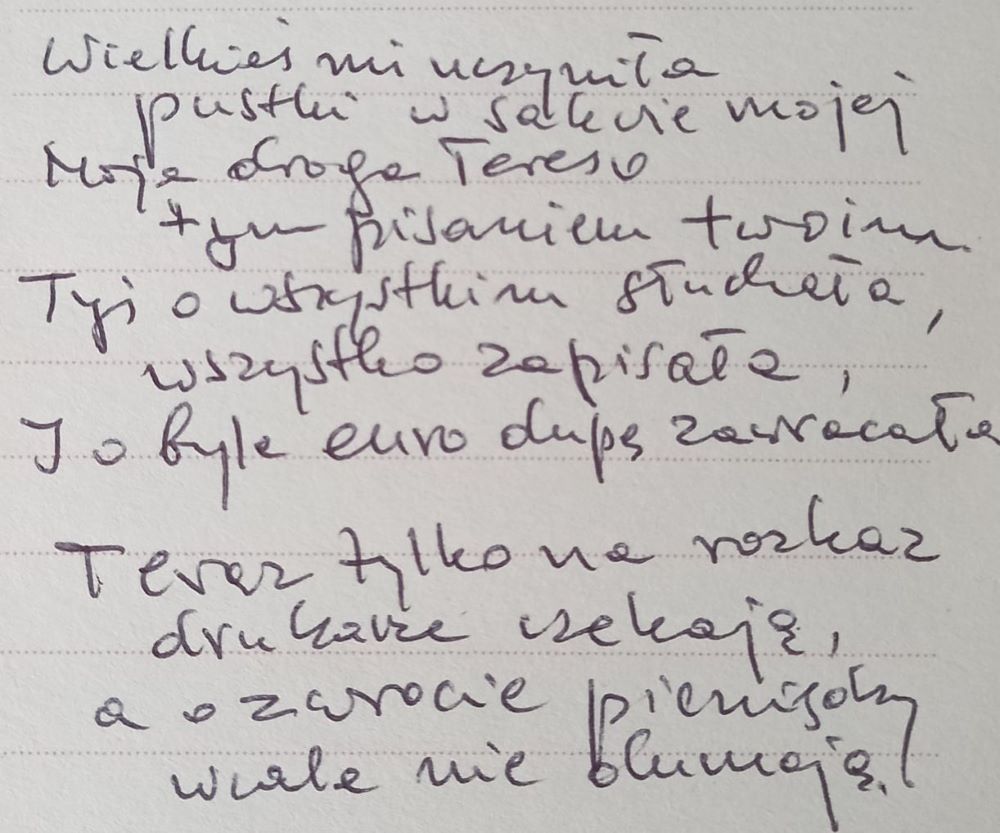 Wielkieś mi uczyniła
pustki w sakwie mojej
Moja droga Tereso
tym pisaniem twoim
Tyś o wszystkim słuchała,
wszystko zapisała,
I o byle euro dupę zawracała
Teraz tylko na rozkaz
drukarze czekają,
a o zwrocie pieniędzy
wcale nie dumają!